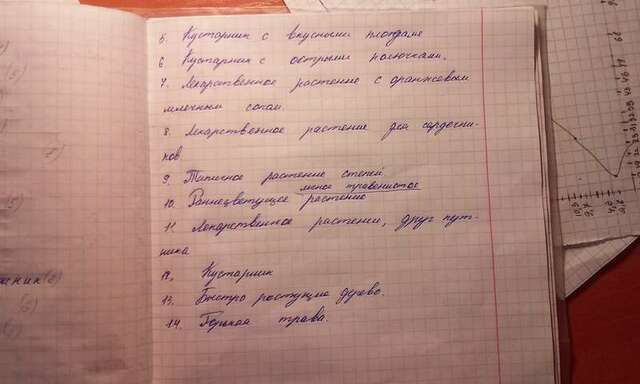 5. Кустарник с вкусными плодами
6 Кустарник с острыми колючками.
7. Лекарственное растение с оранжевым
млечным соком.
8. Лекарственное растение для сердечни-
ков
9. Типичное растение степей
менее травянистое
10. Раннецветущее растение
11. Лекарственное растение, друг пут-
ника
12. Кустарник
13. Быстро растущие дерево.
14. Горькая трава.